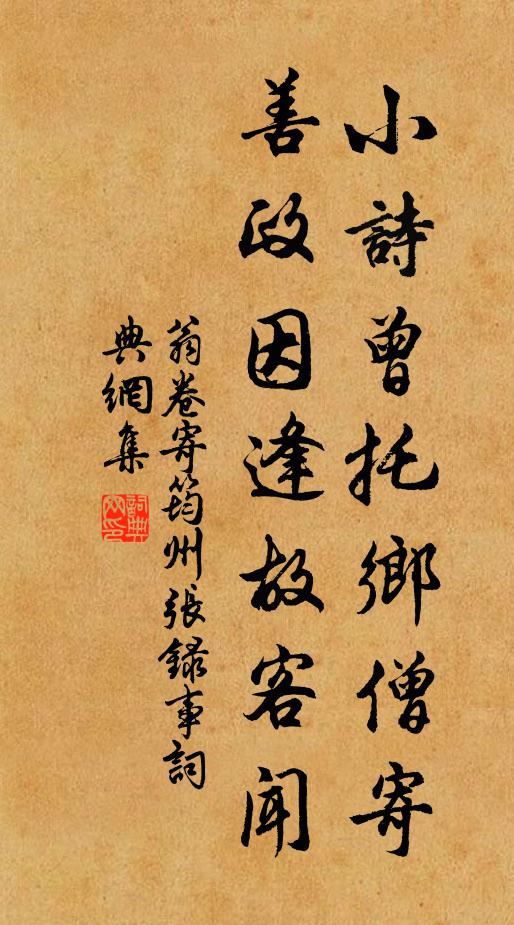 小詩曾托鄉僧寄
善政因逢故客聞
翁卷寄筠州張録事詞
典網集
詞典
网印